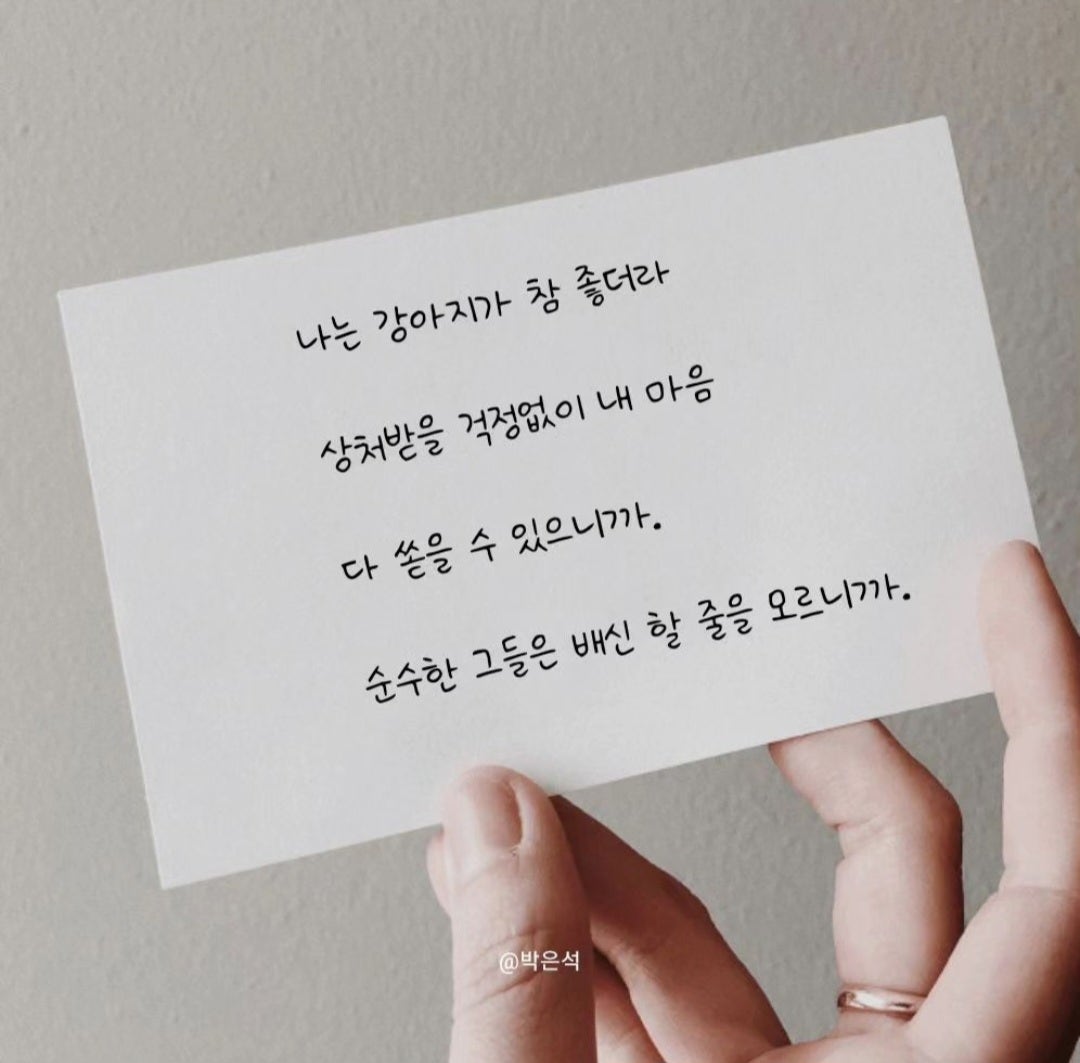 나는 강아지가 참 좋더라
상처받을 걱정없이 내 마음
다 쏟을 수 있으니까.
순수한 그들은 배신 할 줄을 모르니까.
@박은석